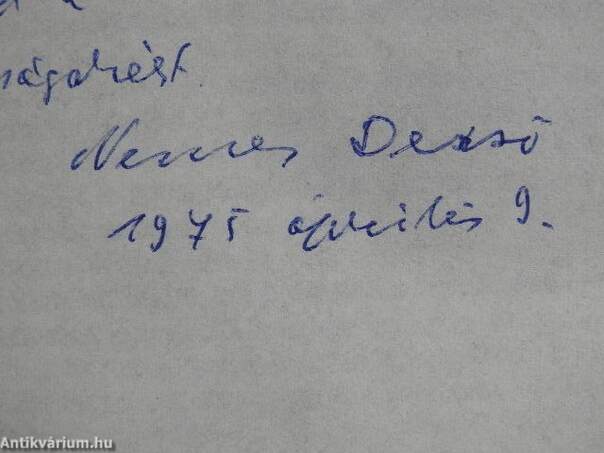 ságokért
Nemes Dezső
1975 április 9.
Antikvárium.hu